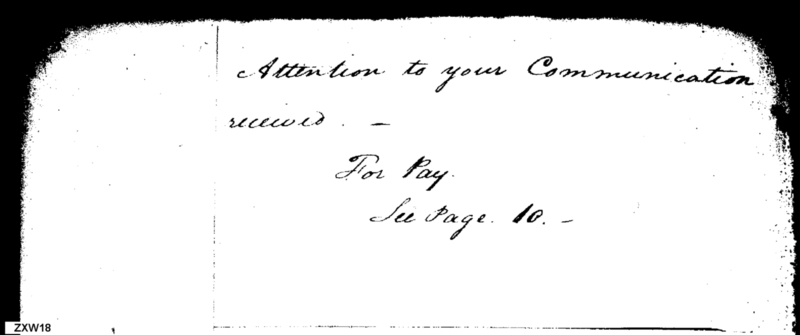 Attention to your Communication
received. —
For Pay.
See Page. 10. —
ZXW18